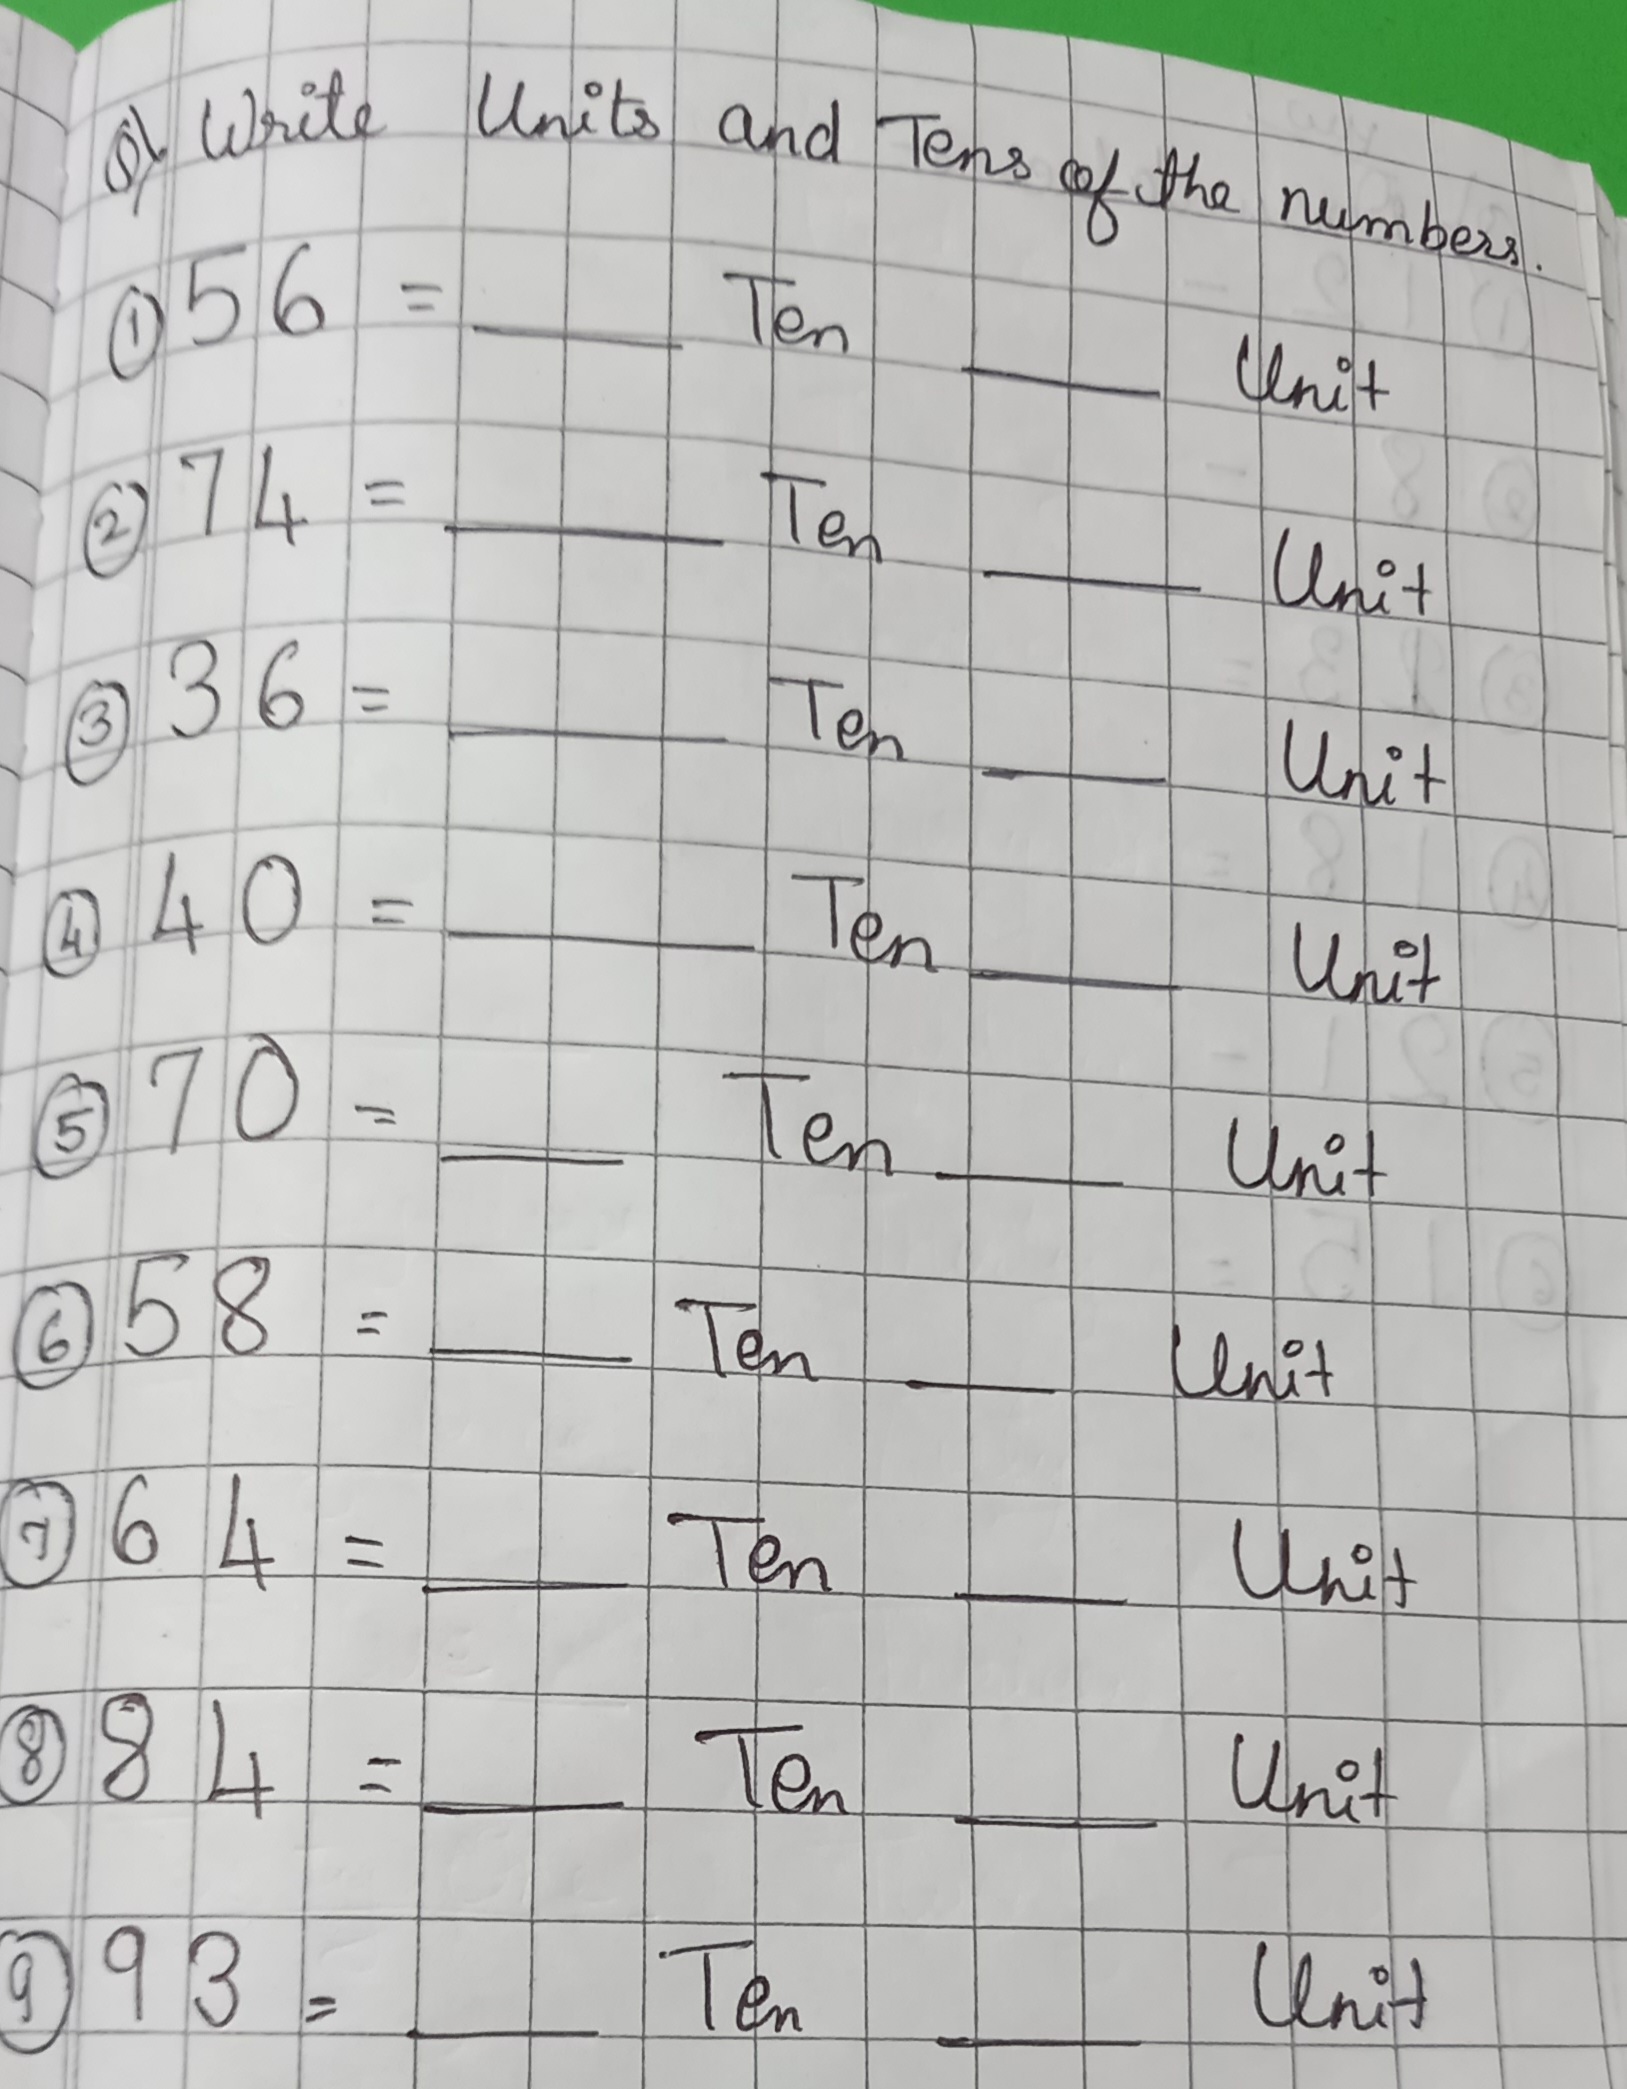 Q) Write Units and Tens of the numbers.
① 56 = ____ Ten ____ Unit
② 74 = ____ Ten ____ Unit
③ 36 = ____ Ten ____ Unit
④ 40 = ____ Ten ____ Unit
⑤ 70 = ____ Ten ____ Unit
⑥ 58 = ____ Ten ____ Unit
⑦ 64 = ____ Ten ____ Unit
⑧ 84 = ____ Ten ____ Unit
⑨ 93 = ____ Ten ____ Unit